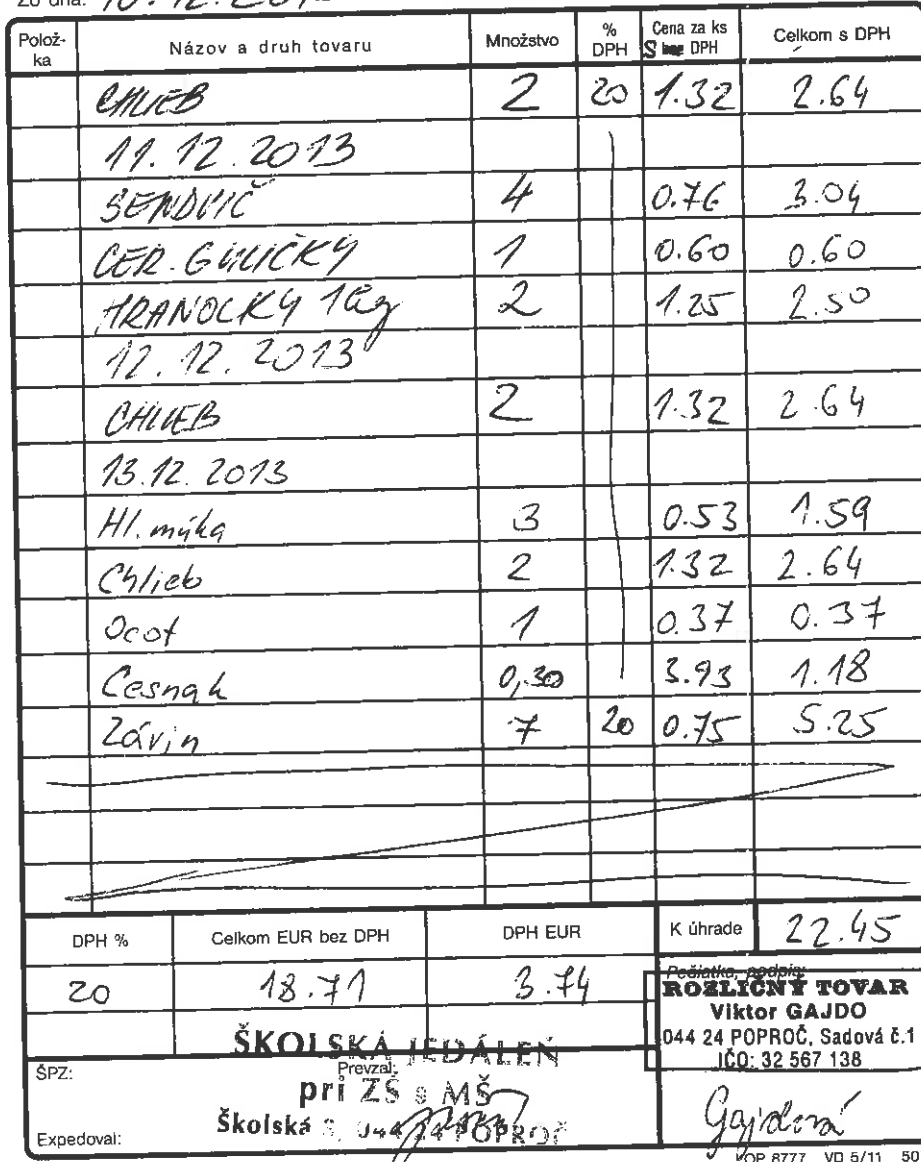 Zo dňa: 10.12.201
Polož-ka Názov a druh tovaru Množstvo % DPH Cena za ks S bez DPH Celkom s DPH
CHLIEB 2 20 1.32 2.64
11.12.2013
SENDVIČ 4 0.76 3.04
CER. GULIČKY 1 0.60 0.60
HRANOLKY 1kg 2 1.25 2.50
12.12.2013
CHLIEB 2 1.32 2.64
13.12.2013
Hl. múka 3 0.53 1.59
Chlieb 2 1.32 2.64
Ocot 1 0.37 0.37
Cesnak 0,30 3.93 1.18
Závin 7 20 0.75 5.25
DPH % Celkom EUR bez DPH DPH EUR K úhrade 22.45
20 18.71 3.74
Pečiatka, podpis:
ROZLIČNÝ TOVAR
Viktor GAJDO
044 24 POPROČ, Sadová č.1
IČO: 32 567 138
ŠKOLSKÁ JEDÁLEŇ
ŠPZ: Prevzal:
pri ZŠ s MŠ
Školská 044 24 POPROČ
Gajdová
Expedoval:
OP 8777 VD 5/11 50